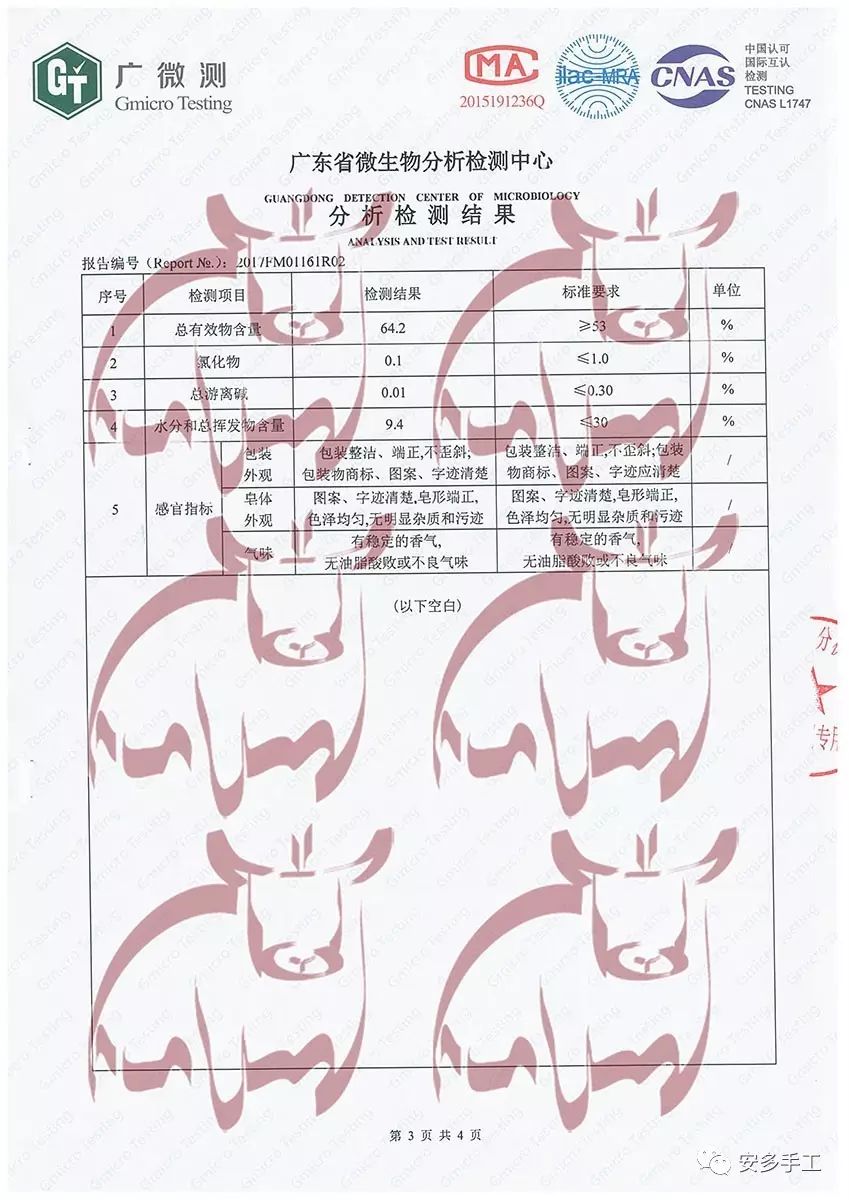 GT
广微测
Gmicro Testing
MA
2015191236Q
ilac-MRA
CNAS
中国认可
国际互认
检测
TESTING
CNAS L1747
广东省微生物分析检测中心
GUANGDONG DETECTION CENTER OF MICROBIOLOGY
分析检测结果
ANALYSIS AND TEST RESULT
报告编号（Report №.）：2017FM01161R02
序号 检测项目 检测结果 标准要求 单位
1 总有效物含量 64.2 ≥53 %
2 氯化物 0.1 ≤1.0 %
3 总游离碱 0.01 ≤0.30 %
4 水分和总挥发物含量 9.4 ≤30 %
5 感官指标
包装 包装整洁、端正,不歪斜; 包装整洁、端正,不歪斜;包装
外观 包装物商标、图案、字迹清楚 物商标、图案、字迹应清楚 /
皂体 图案、字迹清楚,皂形端正, 图案、字迹清楚,皂形端正,
外观 色泽均匀,无明显杂质和污迹 色泽均匀,无明显杂质和污迹 /
气味 有稳定的香气, 有稳定的香气, /
无油脂酸败或不良气味 无油脂酸败或不良气味
(以下空白)
分
专用
第 3 页 共 4 页
安多手工